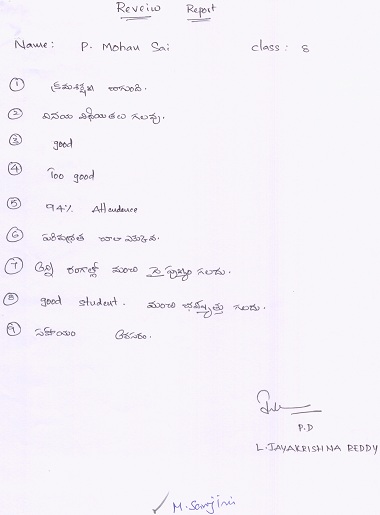 Reveiw Report
Name: P. Mohan Sai class: 8
① క్రమశిక్షణ బాగుంది.
② వినయ విధేయతలు గలవు.
③ good
④ Too good
⑤ 94% Attendence
⑥ పరిశుభ్రత చాలా
⑦ అన్ని రంగాల్లో మంచి గలదు.
⑧ good student. మంచి భవిష్యత్తు గలదు.
⑨ సహాయం అవసరం.
P.D
L. JAYAKRISHNA REDDY
M. Sarojini